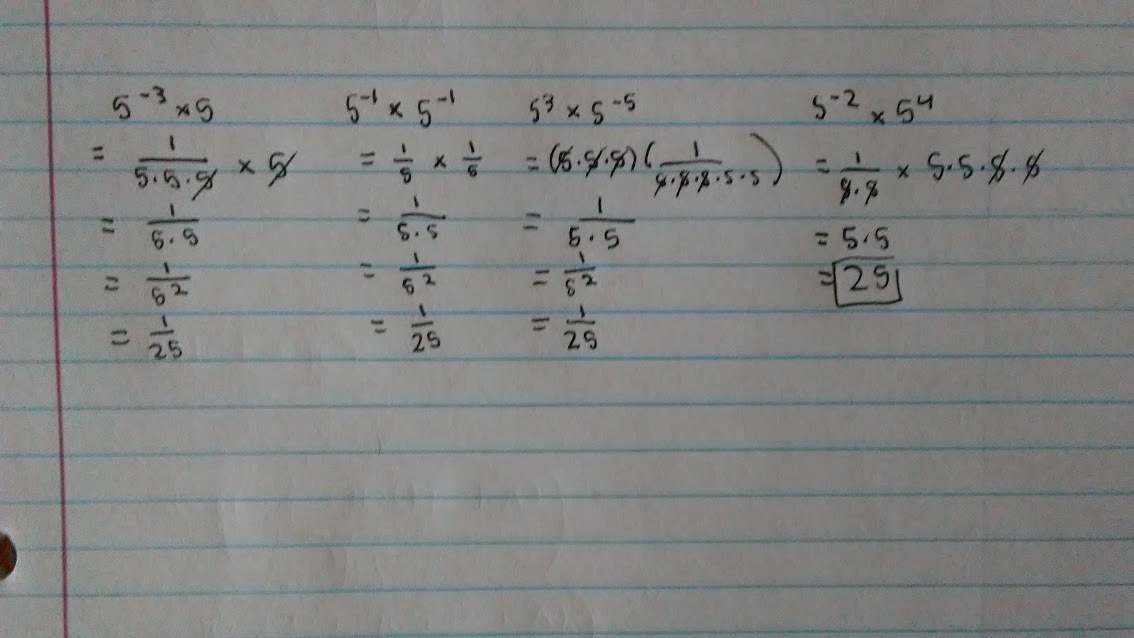 5⁻³ × 5
= 1/(5·5·5) × 5
= 1/(5·5)
= 1/5²
= 1/25
5⁻¹ × 5⁻¹
= 1/5 × 1/5
= 1/(5·5)
= 1/5²
= 1/25
5³ × 5⁻⁵
= (5·5·5)(1/(5·5·5·5·5))
= 1/(5·5)
= 1/5²
= 1/25
5⁻² × 5⁴
= 1/(5·5) × 5·5·5·5
= 5·5
= 25